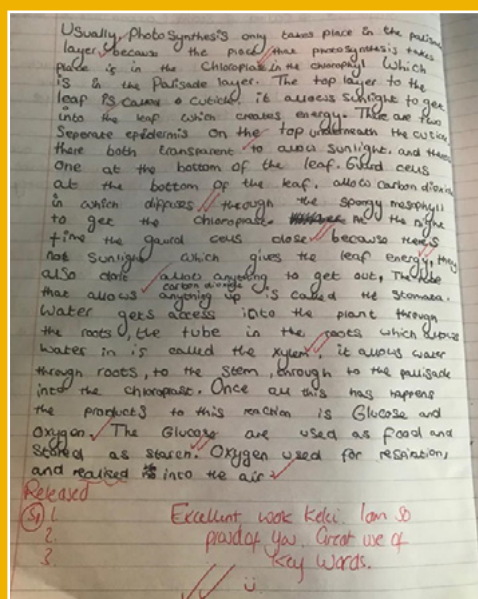 Usually, Photosynthesis only takes place in the palisade
layer, because the place that photosynthesis takes
place is in the Chloroplast in the chlorophyl which
is in the Palisade layer. The top layer to the
leaf is called a cuticle. it allows sunlight to get
into the leaf which creates energy. There are two
Seperate epidermis on the top underneath the cuticle
there both transparent to allow sunlight. and theres
One at the bottom of the leaf. Guard cells
at the bottom of the leaf. allow carbon dioxide
in which diffuses through the spongy mesophyll
to get the chloroplast. At the night
time the gaurd cells close because there's
not sunlight which gives the leaf energy, they
also dont allow anything to get out, The tube
carbon dioxide
that allows anything up is called the stomata.
Water gets access into the plant through
the roots, the tube in the roots which allows
water in is called the xylem, it allows water
through roots, to the stem, through to the pallisade
into the chloroplast. Once all this has happens
the products to this reaction is Glucose and
Oxygen. The Glucose are used as food and
stored as starch. Oxygen used for respiration,
and realised into the air.
Released
S1 1.
2.
3.
Excellent work Kelci. I am so
proud of you. Great use of
Key Words.